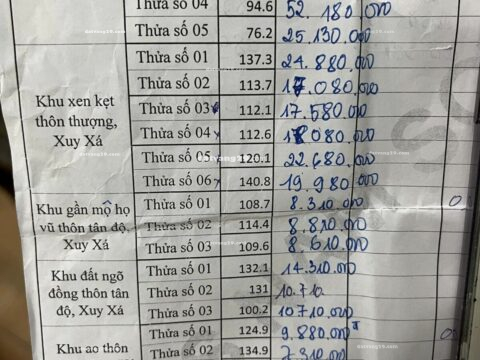 Thửa số 04 94.6 52.180.000
Thửa số 05 76.2 25.130.000
Khu xen kẹt thôn thượng, Xuy Xá
Thửa số 01 137.3 24.880.000
Thửa số 02 113.7 17.080.000
Thửa số 03 112.1 17.580.000
Thửa số 04 112.6 18080.000
Thửa số 05 120.1 22.680.000
Thửa số 06 140.8 19.980.000
Khu gần mộ họ vũ thôn tân độ, Xuy Xá
Thửa số 01 108.7 8.310.000
Thửa số 02 114.4 8.810.000
Thửa số 03 109.6 8.610.000
Khu đất ngõ đồng thôn tân độ, Xuy Xá
Thửa số 01 132.1 14.310.000
Thửa số 02 131 10.710.
Thửa số 03 100.2 10710.000
Khu ao thôn
Thửa số 01 124.9 9.880.000
Thửa số 02 134.9 7.310.000